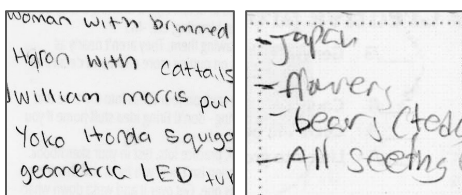 woman with brimmed
Haron with cattails
William morris pur
Yoko Honda Squigg
geometric LED tu
-Japan
-flowers
-bears (ted
-All seeing